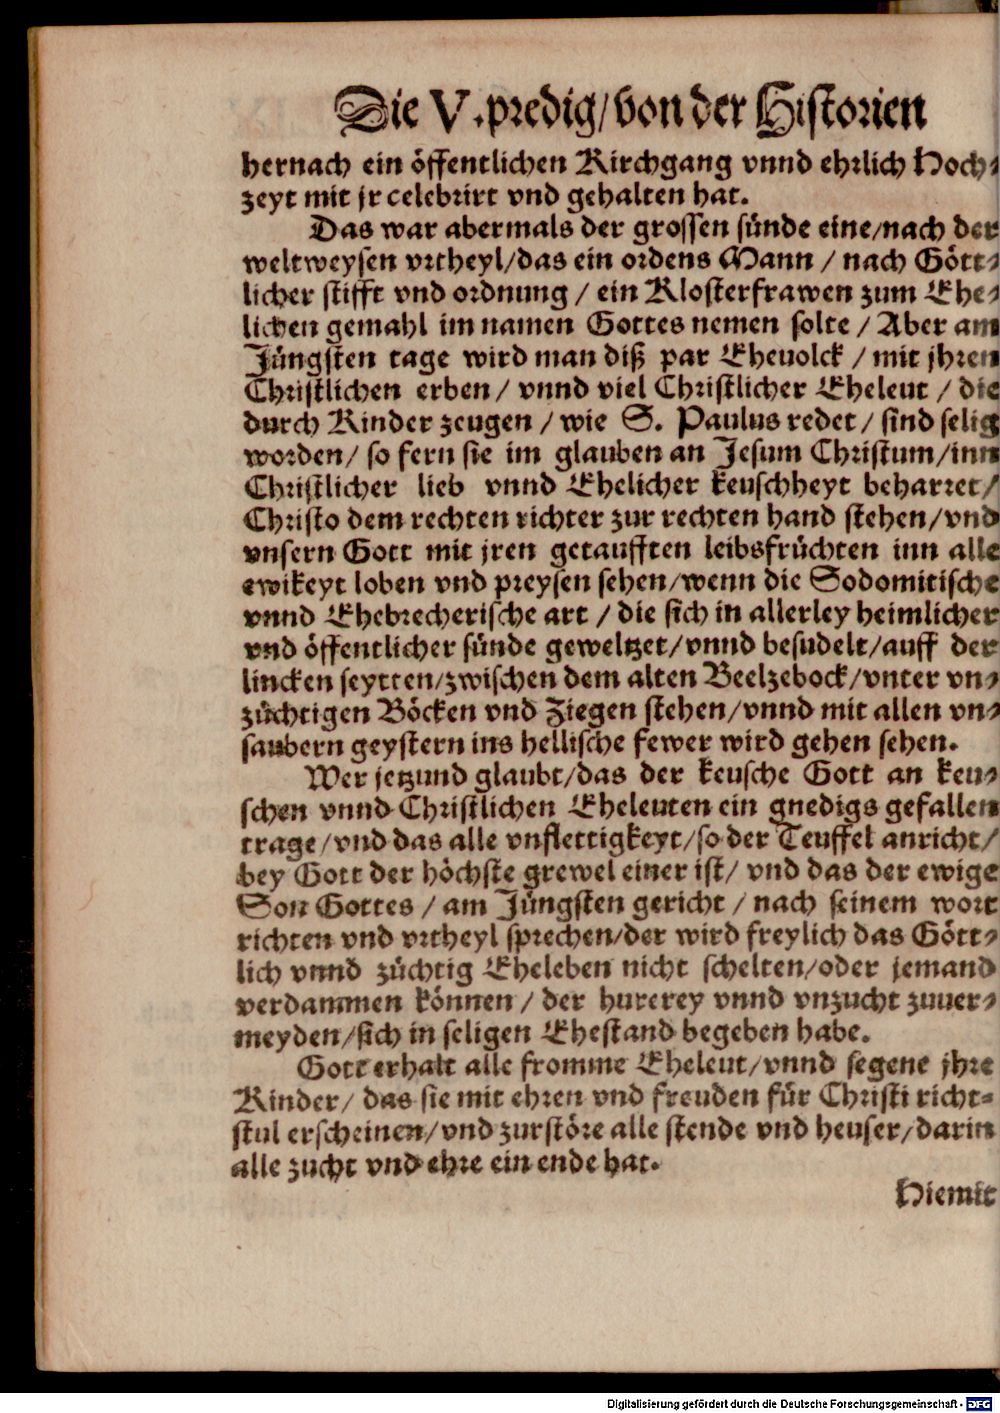 Die V. predig/ von der Historien
hernach ein öffentlichen Kirchgang vnnd ehrlich Hoch-
zeyt mit jr celebrirt vnd gehalten hat.
Das war abermals der grossen sünde eine/nach der
weltweysen vrtheyl/das ein ordens Mann / nach Gött-
licher stifft vnd ordnung / ein Klosterfrawen zum Ehe-
lichen gemahl im namen Gottes nemen solte / Aber am
Jüngsten tage wird man diß par Ehevolck / mit jhren
Christlichen erben / vnnd viel Christlicher Eheleut / die
durch Kinder zeugen / wie S. Paulus redet / sind selig
worden/ so fern sie im glauben an Jesum Christum/inn
Christlicher lieb vnnd Ehelicher keuschheyt beharret/
Christo dem rechten richter zur rechten hand stehen/vnd
vnsern Gott mit jren getaufften leibsfrüchten inn alle
ewikeyt loben vnd preysen sehen/wenn die Sodomitische
vnnd Ehebrecherische art / die sich in allerley heimlicher
vnd öffentlicher sünde geweltzet/vnnd besudelt/auff der
lincken seytten/zwischen dem alten Beelzebock/vnter vn-
züchtigen Böcken vnd Ziegen stehen/vnnd mit allen vn-
saubern geystern ins hellische fewer wird gehen sehen.
Wer jetzund glaubt/das der keusche Gott an keu-
schen vnnd Christlichen Eheleuten ein gnedigs gefallen
trage/vnd das alle vnflettigkeyt/so der Teuffel anricht/
bey Gott der höchste grewel einer ist/ vnd das der ewige
Son Gottes / am Jüngsten gericht / nach seinem wort
richten vnd vrtheyl sprechen/der wird freylich das Gött-
lich vnnd züchtig Eheleben nicht schelten/oder jemand
verdammen können / der hurerey vnnd vnzucht zuuer-
meyden/sich in seligen Ehestand begeben habe.
Gott erhalt alle fromme Eheleut/vnnd segene jhre
Kinder/ das sie mit ehren vnd freuden für Christi richt-
stul erscheinen/vnd zurstöre alle stende vnd heuser/darin
alle zucht vnd ehre ein ende hat.
Hiemit
Digitalisierung gefördert durch die Deutsche Forschungsgemeinschaft - DFG